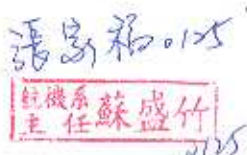 張家福 0125
航機系
主任 蘇盛竹
0125